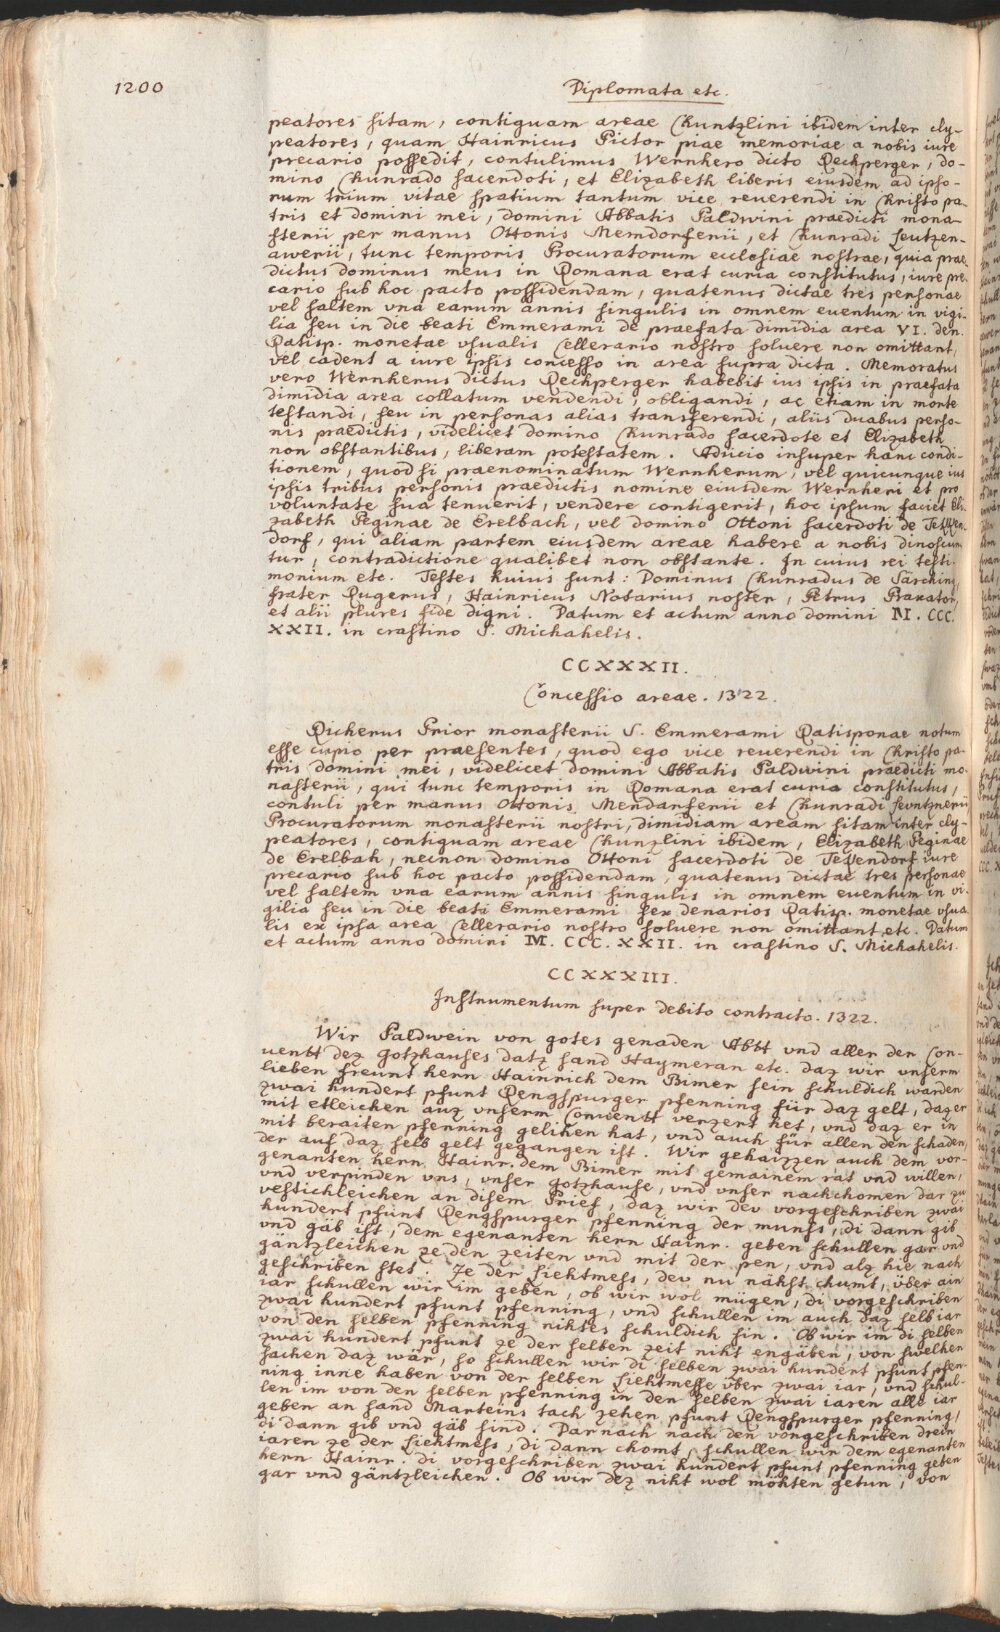 1200
Diplomata etc.
peatores sitam, contiguam areae Chuntzlini ibidem inter cly-
peatores, quam Hainricus Pictor piae memoriae a nobis iure
precario possedit, contulimus Wernhero dicto Rechperger, do-
mino Chunrado sacerdoti, et Elizabeth liberis eiusdem ad ipso-
rum trium vitae spatium tantum vice reuerendi in Christo pa-
tris et domini mei, domini Abbatis Paldwini praedicti mona-
sterii per manus Ottonis Memdorferii, et Chunradi Leutzen-
awerii, tunc temporis Procuratorum ecclesiae nostrae, quia prae-
dictus dominus meus in Romana erat curia constitutus, iure pre-
cario sub hoc pacto possidendam, quatenus dictae tres personae
vel saltem vna earum annis singulis in omnem euentum in vigi-
lia seu in die beati Emmerami de praefata dimidia area VI. den.
Ratisp. monetae vsualis Cellerario nostro soluere non omittant,
vel cadent a iure ipsis concesso in area supra dicta. Memoratus
vero Wernherus dictus Rechperger habebit ius ipsis in praefata
dimidia area collatum vendendi, obligandi, ac etiam in morte
testandi, seu in personas alias transferendi, aliis duabus perso-
nis praedictis, videlicet domino Chunrado sacerdote et Elizabeth
non obstantibus, liberam potestatem. Adiicio insuper hanc condi-
tionem, quod si praenominatum Wernherum, vel quicunque ius
ipsis tribus personis praedictis nomine eiusdem Wernheri et pro
voluntate sua tenuerit, vendere contigerit, hoc ipsum faciet Eli-
zabeth Peginae de Erelbach, vel domino Ottoni sacerdoti de
dorf, qui aliam partem eiusdem areae habere a nobis dinoscun-
tur, contradictione qualibet non obstante. In cuius rei testi-
monium etc. Testes huius sunt: Dominus Chunradus de Särching,
frater Rugerus, Hainricus Notarius noster, Petrus Praxator,
et alii plures fide digni. Datum et actum anno domini M. CCC.
XXII. in crastino S. Michahelis.
CCXXXII.
Concessio areae. 1322.
Richerus Prior monasterii S. Emmerami Ratisponae notum
esse cupio per praesentes, quod ego vice reuerendi in Christo pa-
tris domini mei, videlicet domini Abbatis Paldwini praedicti mo-
nasterii, qui tunc temporis in Romana erat curia constitutus,
contuli per manus Ottonis Mendarferii et Chunradi Levntznerii,
Procuratorum monasterii nostri, dimidiam aream sitam inter cly-
peatores, contiguam areae Chunzlini ibidem, Elizabeth Peginae
de Erelbah, necnon domino Ottoni sacerdoti de Teÿendorf iure
precario sub hoc pacto possidendam, quatenus dictae tres personae
vel saltem vna earum annis singulis in omnem euentum in vi-
gilia seu in die beati Emmerami sex denarios Ratisp. monetae vsua-
lis ex ipsa area Cellerario nostro soluere non omittant etc. Datum
et actum anno domini M. CCC. XXII. in crastino S. Michahelis.
CCXXXIII.
Instrumentum super debito contracto. 1322.
Wir Paldwein von gotes genaden Abtt vnd aller der Con-
uentt dez gotzhauses datz sand Haymeran etc. daz wir vnserm
lieben freunt hern Hainrich dem Bimer sein schuldich warden
zwai hundert pfunt Rengspurger pfenning für daz gelt, daz er
mit etleichen auz vnserm Conuentt verzert het, vnd daz er in
mit beraiten pfenning gelihen hat, vnd auch für allen den schaden,
der auf daz selb gelt gegangen ist. Wir gehaizzen auch dem vor-
genanten hern Hainr. dem Bimer mit gemainem rat vnd willen,
vnd verpinden vns, vnser gotzhause, vnd vnser nachchomen dar zu
vestichleichen an disem Prief, daz wir dev vorgeschriben zwai
hundert pfunt Rengspurger pfenning der munss, di dann gib
vnd gäb ist, dem egenanten hern Hainr. geben schullen gar vnd
gäntzleichen ze den zeiten vnd mit der pen, vnd alz hie nach
geschriben stet. Ze der Liehtmess, dev nu nähst chumt, über ain
iar schullen wir im geben, ob wir wol mügen, di vorgeschriben
zwai hundert pfunt pfenning, vnd schullen im auch daz selb iar
von den selben pfenning nihtes schuldich sin. Ob wir im di selben
zwai hundert pfunt ze der selben zeit niht engäben, von swelhen
sachen daz wär, so schullen wir di selben zwai hundert pfunt pfen-
ning inne haben von der selben Liehtmesse über zwai iar, vnd schul-
len im von den selben pfenning in den selben zwai iaren alle iar
geben an sand Marteins tach zehen pfunt Rengspurger pfenning,
di dann gib vnd gäb sind. Darnach nach den vorgeschriben drein
iaren ze der Liehtmess, di dann chomt, schullen wir dem egenanten
hern Hainr. di vorgeschriben zwai hundert pfunt pfenning geben
gar vnd gäntzleichen. Ob wir dez niht wol möhten getun, von